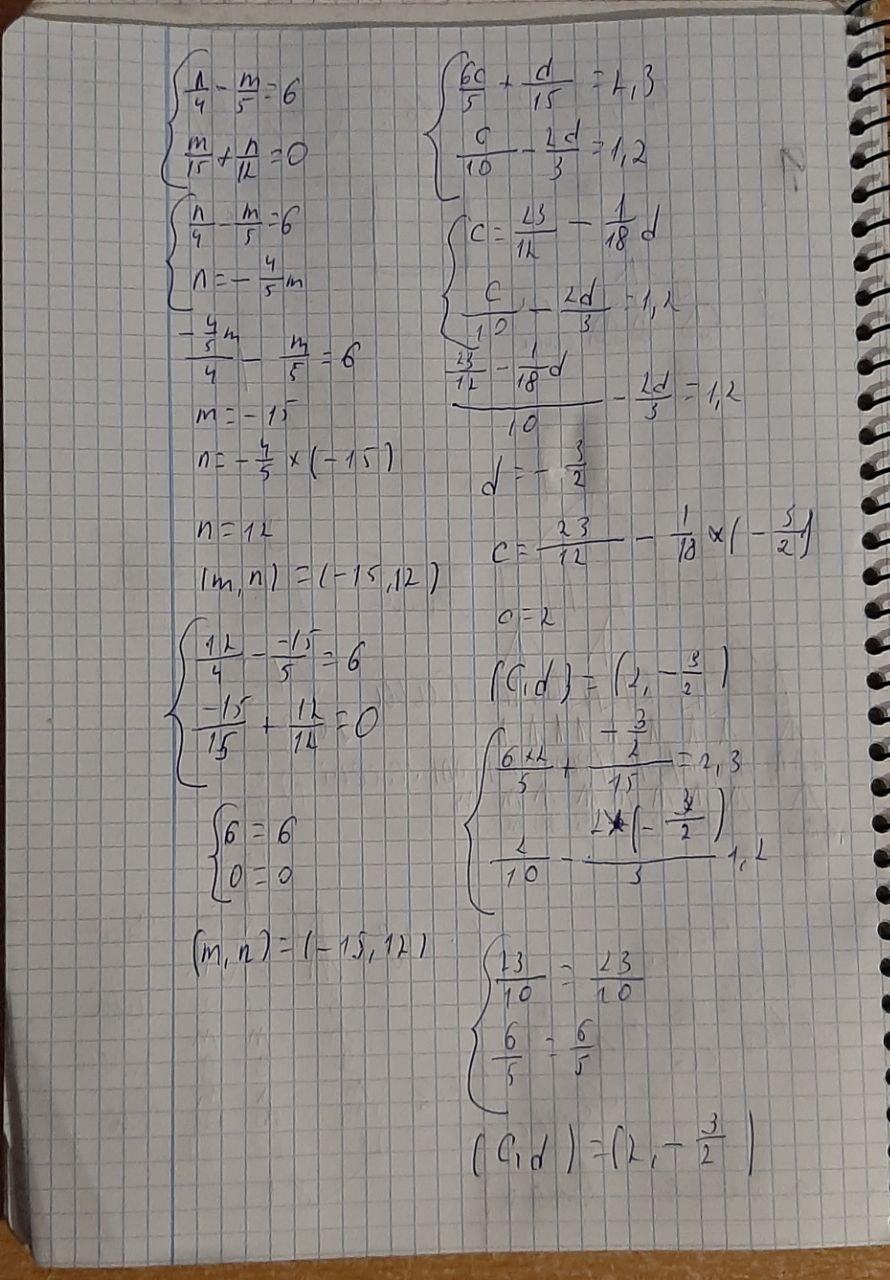 n/4 - m/5 = 6
m/15 + n/12 = 0
n/4 - m/5 = 6
n = - 4/5 m
(- 4/5 m)/4 - m/5 = 6
m = - 15
n = - 4/5 × (- 15)
n = 12
(m, n) = (- 15, 12)
12/4 - -15/5 = 6
-15/15 + 12/12 = 0
6 = 6
0 = 0
(m, n) = (- 15, 12)
6c/5 + d/15 = 2,3
c/10 - 2d/3 = 1,2
c = 23/12 - 1/18 d
c/10 - 2d/3 = 1,2
(23/12 - 1/18 d)/10 - 2d/3 = 1,2
d = - 3/2
c = 23/12 - 1/18 × (- 3/2)
c = 2
(c, d) = (2, - 3/2)
6×2/5 + (- 3/2)/15 = 2,3
2/10 - 2×(- 3/2)/3 1,2
23/10 = 23/10
6/5 = 6/5
(c, d) = (2, - 3/2)